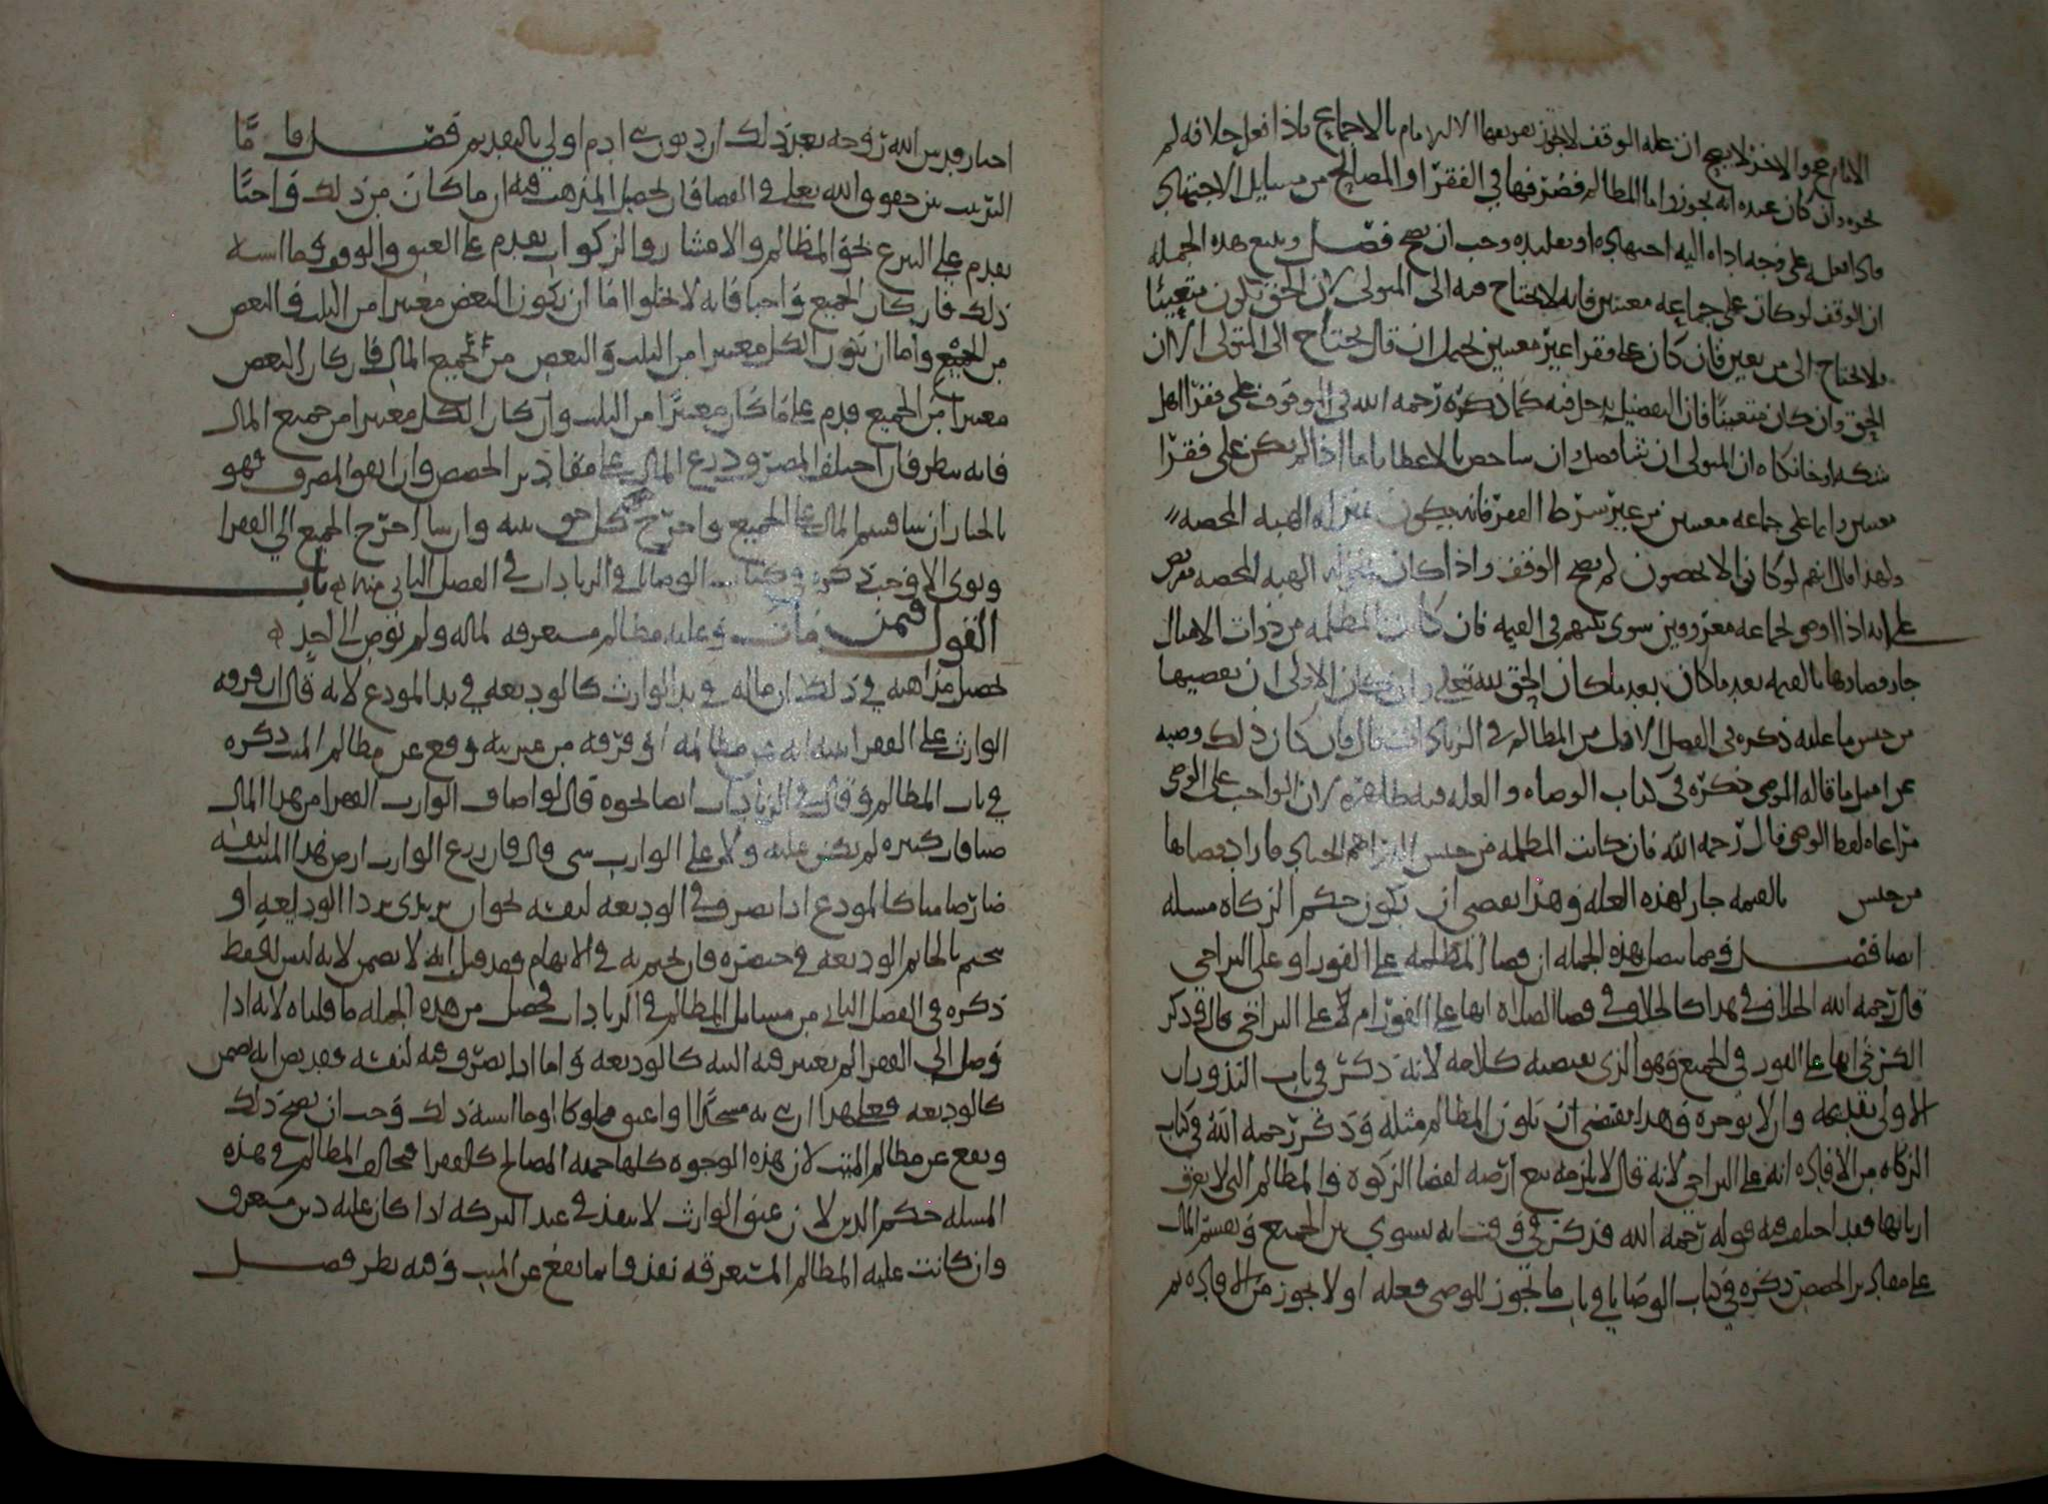 الامام مج والاخر لا يصح ان غله الوقف لا يجوز تفريقها الا للامام بالاجماع فاذا فعل خلافه لم
يجزه وان كان عنده انه يجوز واما المظالم فصرفها في الفقرا او المصالح من مسايل الاجتهاد
فاذا فعله على وجه اداه اليه اجتهاده او تقليده وجب ان يصح فصل ويتبع هذه الجمله
ان الوقف لو كان على جماعه معينين فانه لا يحتاج فيه الى المتولي لان الحق يكون متعينا
فلا يحتاج الى من يعين فان كان على فقرا غير معينين يحتمل ان قال يحتاج الى المتولي لان
الحق وان كان متعينا فان التفضيل يدخل فيه كما ذكره رحمه الله في الموقوف على فقرا اهل
شكه او خانكاه ان المتولي ان شا فضل وان شا خص بالاعطا فاما اذا لم يكن على فقرا
معينين وانما على جماعه معينين من غير شرط الفقر فانه يكون بمنزله الهبه المحضه
ولهذا قال انهم لو كانوا لا يحصون لم يصح الوقف واذا كان بمنزله الهبه المحضه
على انه اذا اوصى لجماعه معروفين سوى بينهم في القيمه فان كانت المظلمه من ذوات الامثال
جاز قضاوها بالقيمه بعد ما كان الحق لله تعلى وان كان الاولى ان يقضيها
من جنس ما عليه ذكره في الفصل الاول من المظالم في الزيادات قال فان كان ذلك وصيه
عن امتثل ما قاله الموصي ذكره في كتاب الوصاه والعله فيه ظاهره لان الواجب على الوصي
مراعاه لفظ الموصي قال رحمه الله فان كانت المظلمه من جنس الدراهم الجياد فاراد قضاها
من جنس بالقيمه جاز لهذه العله وهذا يقضي ان يكون حكم الزكاه مسله
ايضا فصل وفيما يتصل بهذه الجمله ان قضا المظلمه على الفور او على التراخي
قال رحمه الله الخلاف في هذا كالخلاف في قضا الصلاه انها على الفور ام لا على التراخي قال وذكر
الكرخي انها على الفور في الجميع وهو الذي يقتضيه كلامه لانه ذكر في باب النذور ان
الاولى تقديمه وان لا يوخره وهذا يقتضي ان يكون المظالم مثله وذكر رحمه الله في كتاب
الزكاه من الافاده انه على التراخي لانه قال لا يلزمه بيع ارضه لقضا الزكوه والمظالم التي لا يعرف
اربابها فقد اختلف فيه قوله رحمه الله فذكر في وقت انه يسوي بين الجميع ويقسم المال
على مقادير الحصص ذكره في كتاب الوصايا في باب ما يجوز للوصي فعله او لا يجوز من الافاده ثم
اختار قدس الله روحه بعد ذلك ان ديون بني ادم اولى بالتقديم فصل فاما
الترتيب بين حقوق الله تعلى في القضا فان تحصيل المذهب فيه ان ما كان من ذلك واجبا
يقدم على التبرع نحو المظالم والاعشار والزكوات يقدم على العتق والوقوف وما اشبه
ذلك فان كان الجميع واجبا فانه لا يخلوا اما ان يكون البعض معتبرا من الثلث والبعض
من الجميع واما ان يكون الكل معتبرا من الثلث والبعض من الجميع المال فان كان البعض
معتبرا من الجميع قدم على ما كان معتبرا من الثلث وان كان الكل معتبرا من جميع المال
فانه ينظر فان اختلف المصرف وزع المال على مقادير الحصص وان اتفق المصرف فهو
بالخيار ان شا قسم المال على الجميع واخرج كل حق بنيه وان شا اخرج الجميع الى الفقرا
ونوى الاوجب ذكره في كتاب الوصايا في الزيادات في الفصل الثاني منه باب
القول فيمن مات وعليه مظالم مستغرقه لماله ولم يوص الى احد
تحصيل مذاهبه في ذلك ان ماله في يد الوارث كالوديعه في يد المودع لانه قال ان فرقه
الوارث على الفقرا بنيه انه عن مظالمه او فرقه من غير نيه وقع عن مظالم الميت ذكره
في باب المظالم وقال في الزيادات ايضا نحوه قال لو اضاف الوارث الفقرا من هذا المال
ضيافات كثيره لم يكن عليه ولا على الوارث شي قال فان زرع الوارث ارض هذا الميت لنفسه
صار ضامنا كالمودع اذا تصرف في الوديعه لنفسه نحو ان يرتدي بردا الوديعه او
يتختم بالخاتم الوديعه في خنصره فان تختم به في الابهام فقد قيل انه لا يضمن لانه لبس للحفظ
ذكره في الفصل الثاني من مسايل المظالم في الزيادات فحصل من هذه الجمله ما قلناه لانه اذا
وصل الى الفقرا لم يعتبر فيه النيه كالوديعه واما اذا تصرف فيه لنفسه فقد نص انه يضمن
كالوديعه فعلى هذا ان بنى به مسجدا او اعتق مملوكا او ما اشبه ذلك وجب ان يصح ذلك
ويقع عن مظالم الميت لان هذه الوجوه كلها جهه المصالح كالفقرا فخالف المظالم في هذه
المسله حكم الدين لان عتق الوارث لا ينفذ في عبد التركه اذا كان عليه دين مستغرق
وان كانت عليه المظالم المستغرقه نفذ وانما يقع عن الميت وفيه نظر فصل